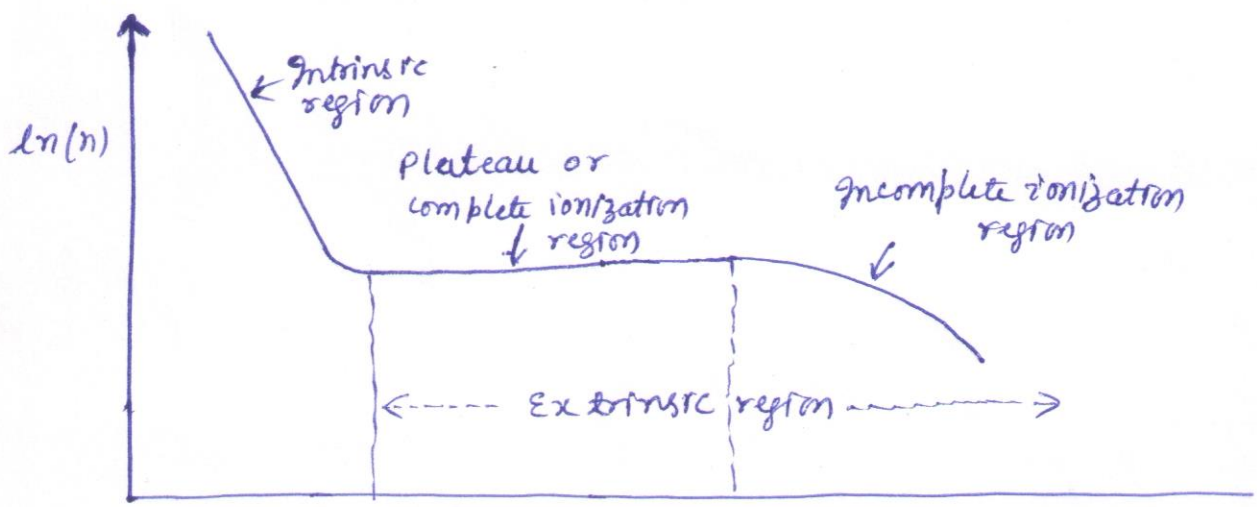 ln(n)
Intrinsic
region
Plateau or
complete ionization
region
Incomplete ionization
region
Extrinsic region